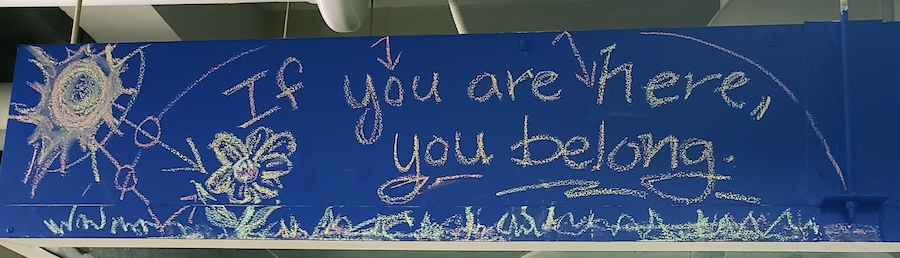 If you are here,
you belong.